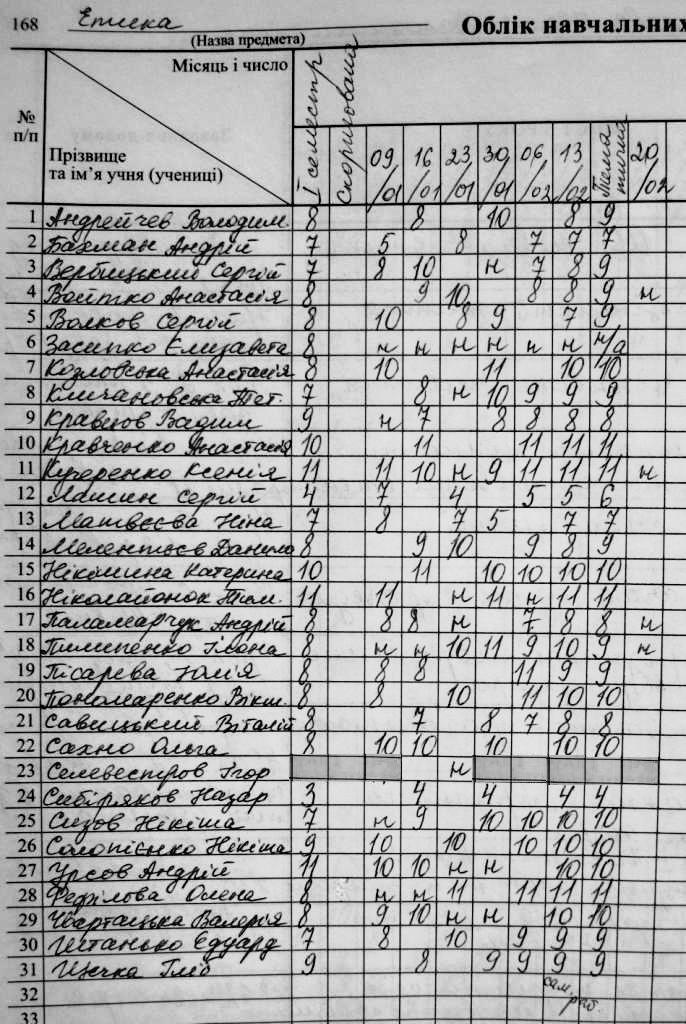 168 Етика Облік навчальних
(Назва предмета)
Місяць і число
№ п/п
Прізвище та ім'я учня (учениці)
І семестр Скоригована 09/01 16/01 23/01 30/01 06/02 13/02 Тематична 20/02
1 Андрейчев Володим. 8 8 10 8 9
2 Бахман Андрій 7 5 8 7 7 7
3 Вербицький Сергій 7 8 10 н 7 8 9
4 Войтко Анастасія 8 9 10 8 8 9 н
5 Волков Сергій 8 10 8 9 7 9
6 Засипко Єлизавета 8 н н н н н н н/а
7 Козловська Анастасія 8 10 11 10 10
8 Кличановська Тет. 7 8 н 10 9 9 9
9 Кравцов Вадим 9 н 7 8 8 8 8
10 Кравченко Анастасія 10 11 11 11 11
11 Кучеренко Ксенія 11 11 10 н 9 11 11 11 н
12 Лашин Сергій 4 7 4 5 5 6
13 Матвєєва Ніна 7 8 7 5 7 7
14 Мелентьєв Данило 8 9 10 9 8 9
15 Нікішина Катерина 10 11 10 10 10 10
16 Ніколайонок Тим. 11 11 н 11 н 11 11
17 Паламарчук Андрій 8 8 8 н 7 8 8 н
18 Пилипенко Ілона 8 н н 10 11 9 10 9 н
19 Пісарєва Юлія 8 8 8 11 9 9
20 Пономаренко Вікт. 8 8 10 11 10 10
21 Савицький Віталій 8 7 8 7 8 8
22 Сахно Ольга 8 10 10 10 10 10
23 Селевестров Ігор н
24 Сибіряков Назар 3 4 4 4 4
25 Сизов Нікіта 7 н 9 10 10 10 10
26 Солопієнко Нікіта 9 10 10 10 10 10
27 Урсов Андрій 11 10 10 н н 10 10
28 Феділова Олена 8 н н 11 11 11 11
29 Чвартацька Валерія 8 9 10 н н 10 10
30 Штанько Едуард 7 8 10 9 9 9
31 Щечка Гліб 9 8 9 9 9 9
32 сам. раб.
33